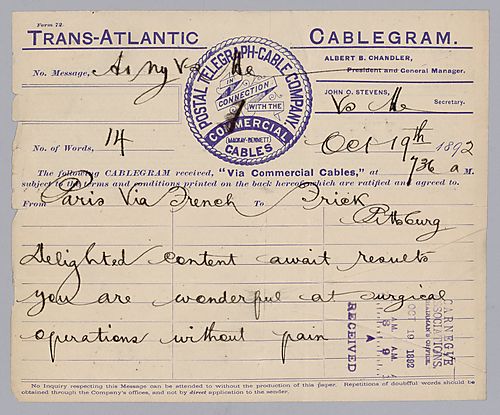 Form 72.
TRANS-ATLANTIC CABLEGRAM.
POSTAL TELEGRAPH-CABLE COMPANY
IN CONNECTION WITH THE
COMMERCIAL
(MACKAY-BENNETT)
CABLES
ALBERT B. CHANDLER,
President and General Manager.
JOHN O. STEVENS,
Secretary.
No. Message,
No. of Words, 14
Oct 19th 1892
The following CABLEGRAM received, "Via Commercial Cables," at 736 a M.
subject to the terms and conditions printed on the back hereof, which are ratified and agreed to.
From Paris Via French To Frick
Pittsburg
Delighted content await results
you are wonderful at surgical
operations without pain
CARNEGIE
ASSOCIATIONS
CHAIRMAN'S OFFICE.
OCT 19 1892
A.M.
RECEIVED
No Inquiry respecting this Message can be attended to without the production of this paper. Repetitions of doubtful words should be
obtained through the Company's offices, and not by direct application to the sender.